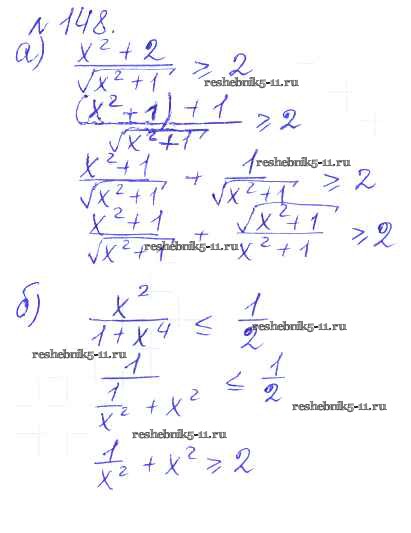 № 148.
а) (x² + 2)/√(x² + 1) ≥ 2
reshebnik5-11.ru
((x² + 1) + 1)/√(x² + 1) ≥ 2
(x² + 1)/√(x² + 1) + 1/√(x² + 1) ≥ 2
reshebnik5-11.ru
(x² + 1)/√(x² + 1) + √(x² + 1)/(x² + 1) ≥ 2
reshebnik5-11.ru
б) x²/(1 + x⁴) ≤ 1/2
reshebnik5-11.ru
reshebnik5-11.ru
1/(1/x² + x²) ≤ 1/2
reshebnik5-11.ru
reshebnik5-11.ru
1/x² + x² ≥ 2